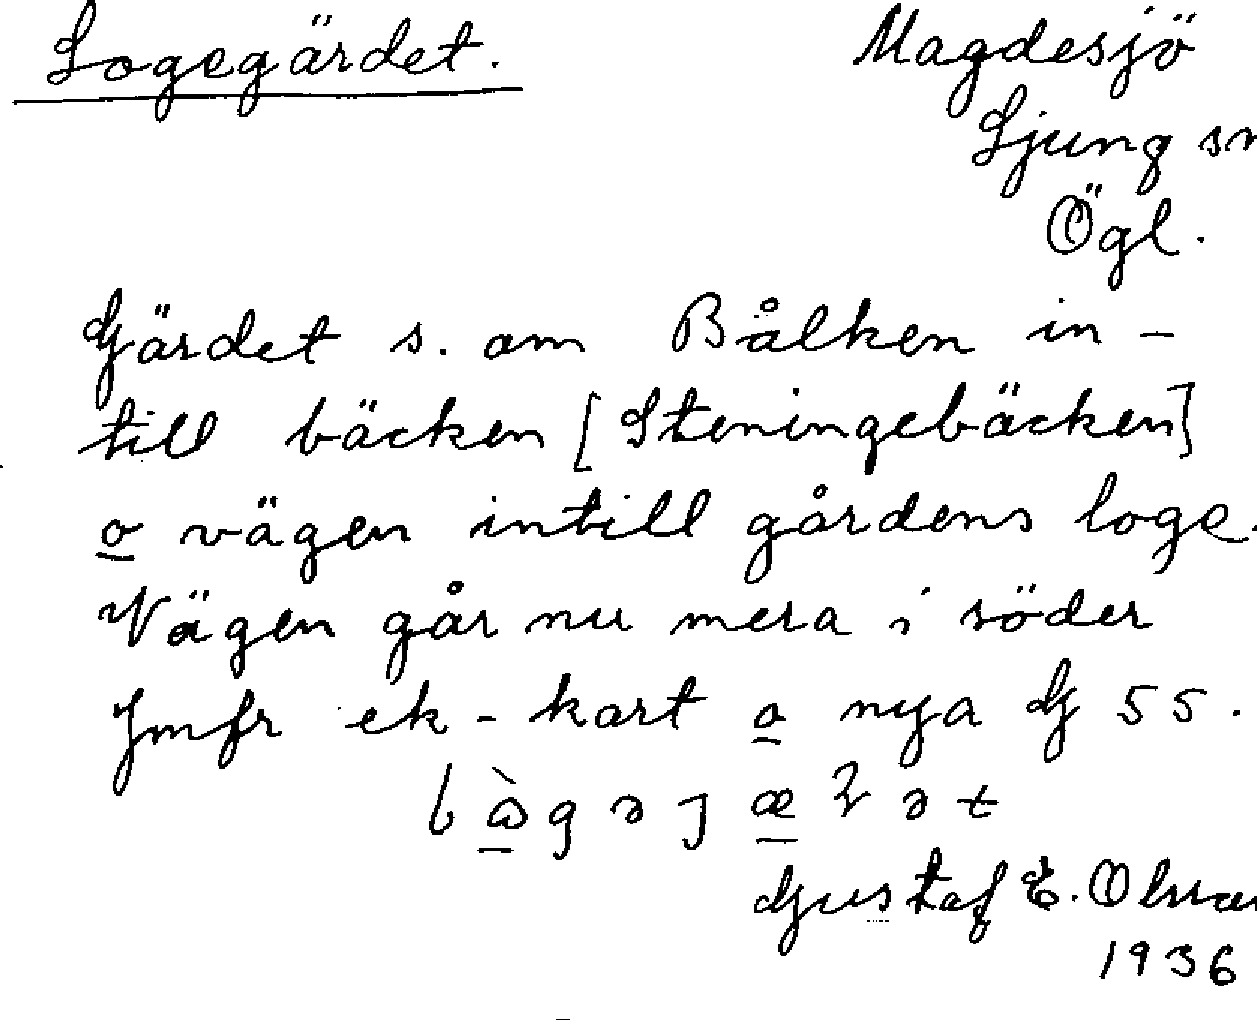 Logegärdet.
Magdesjö
Ljung sn
Ögl.
Gärdet s. om Bålken in-
till bäcken [Steningebäcken]
o vägen intill gårdens loge.
Vägen går nu mera i söder
Jmfr ek-kart o nya G 55.
Gustaf E.
1936